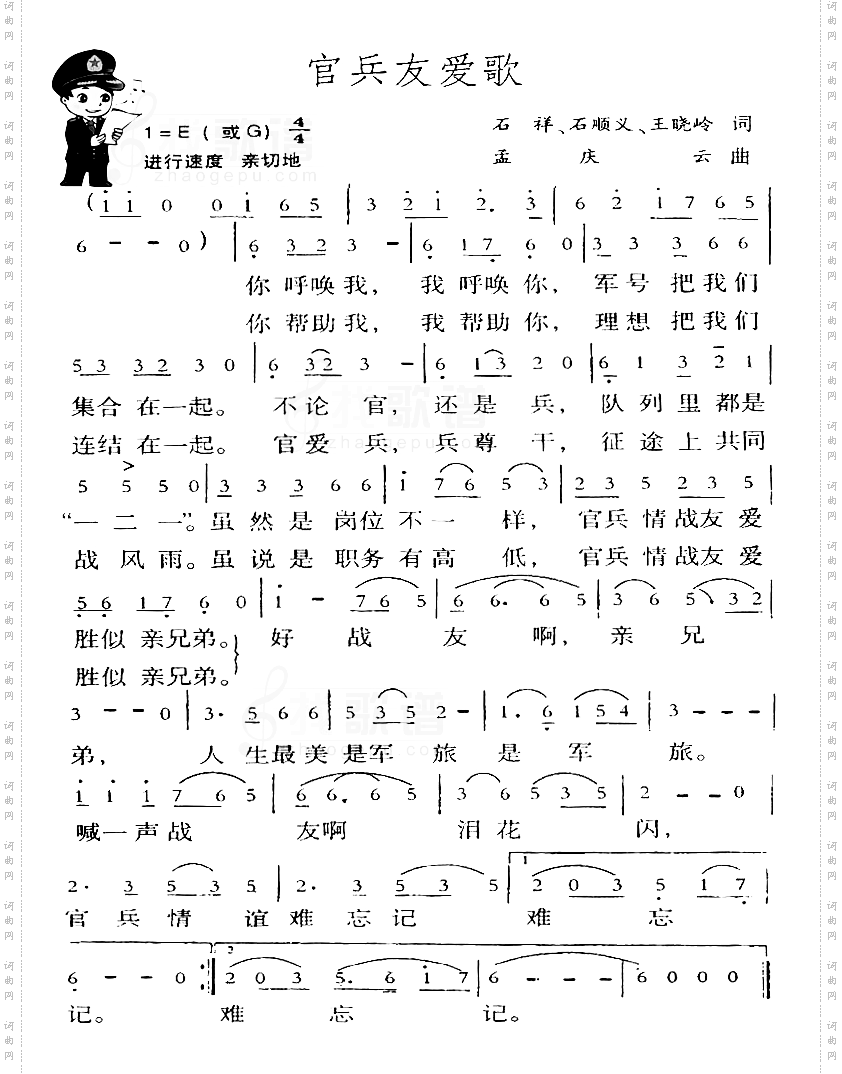 官兵友爱歌
1=E（或G）4/4
石 祥、石顺义、王晓岭 词
进行速度 亲切地
孟 庆 云 曲
(i i 0 0 i 6 5 | 3 2 i 2. 3 | 6 2 i 7 6 5
6 - - 0) | 6 3 2 3 - | 6 1 7 6 0 | 3 3 3 6 6
你 呼唤 我， 我 呼唤 你， 军号 把我们
你 帮助 我， 我 帮助 你， 理想 把我们
5 3 3 2 3 0 | 6 3 2 3 - | 6 1 3 2 0 | 6 1 3 2 1 |
集合 在一起。 不论 官， 还是 兵， 队列里都是
连结 在一起。 官爱 兵， 兵尊 干， 征途上共同
5 5 5 0 | 3 3 3 6 6 | i 7 6 5 3 | 2 3 5 2 3 5 |
“一 二 一”。虽 然是 岗位 不一 样， 官兵 情战友 爱
战 风雨。虽 说是 职务 有高 低， 官兵 情战友 爱
5 6 1 7 6 0 | i - 7 6 5 | 6 6. 6 5 | 3 6 5 3 2 |
胜似 亲兄弟。 好 战 友 啊， 亲 兄
胜似 亲兄弟。
3 - - 0 | 3. 5 6 6 | 5 3 5 2 - | 1. 6 1 5 4 | 3 - - - |
弟， 人 生最美 是军 旅 是 军 旅。
i i i 7 6 5 | 6 6. 6 5 | 3 6 5 3 5 | 2 - - 0 |
喊一声战 友啊 泪花 闪，
2. 3 5 3 5 | 2. 3 5 3 5 | 1 2 0 3 5 1 7 |
官 兵 情 谊 难 忘 记 难 忘
6 - - 0 :| 2 2 0 3 5. 6 i 7 | 6 - - - | 6 0 0 0 ||
记。 难 忘 记。